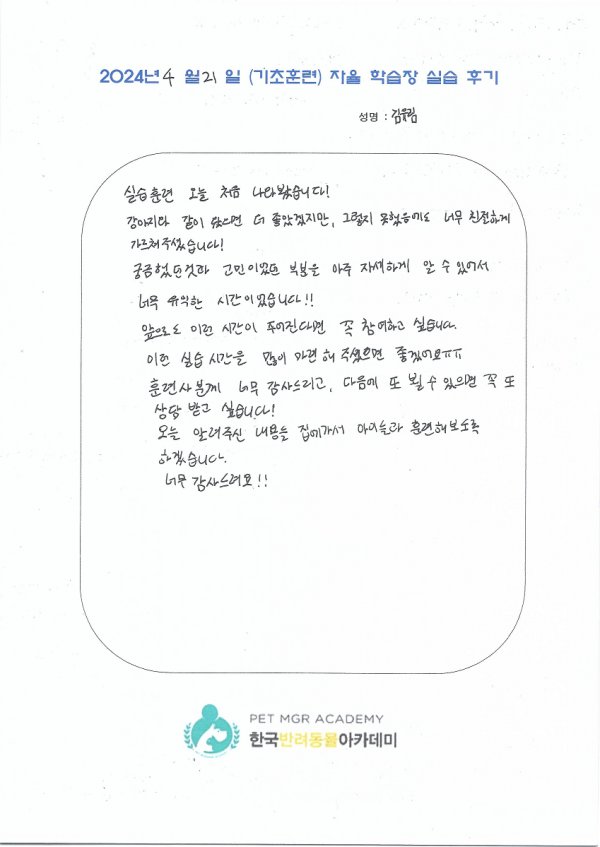 2024년 4 월 21 일 (기초훈련) 자율 학습장 실습 후기
성명 : 김유림
실습훈련 오늘 처음 나와봤습니다!
강아지와 같이 왔으면 더 좋았겠지만, 그렇지 못했음에도 너무 친절하게
가르쳐주셨습니다!
궁금했던것과 고민이었던 부분은 아주 자세하게 알 수 있어서
너무 유익한 시간이었습니다!!
앞으로도 이런 시간이 주어진다면 꼭 참여하고 싶습니다.
이런 실습 시간을 많이 마련해 주셨으면 좋겠어요ㅠㅠ
훈련사분께 너무 감사드리고, 다음에 또 뵐 수 있으면 꼭 또
상담 받고 싶습니다!
오늘 알려주신 내용을 집에가서 아이들과 훈련해보도록
하겠습니다.
너무 감사드려요!!
PET MGR ACADEMY
한국반려동물아카데미